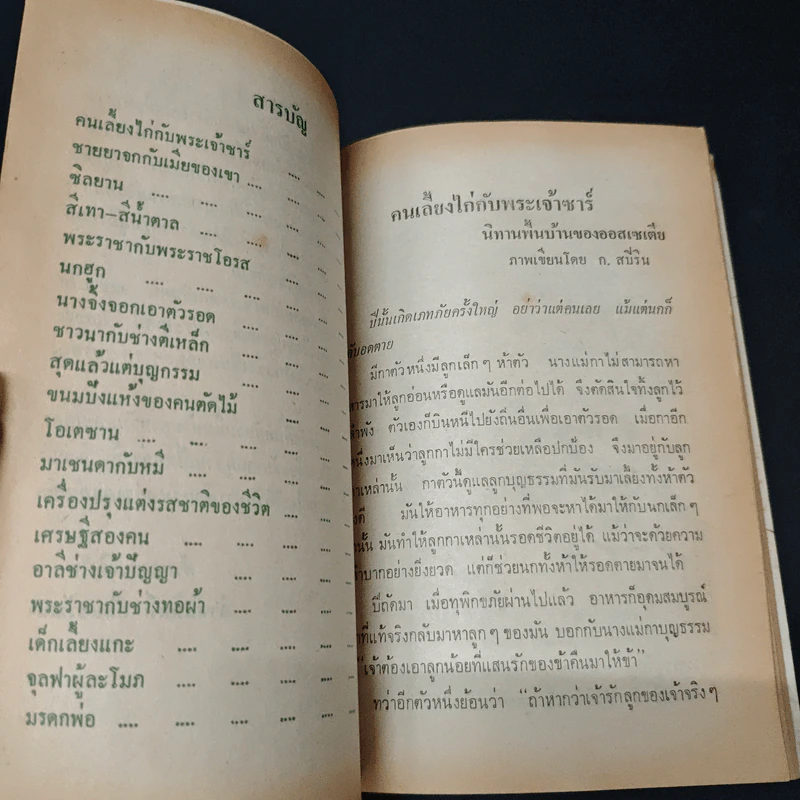 สารบัญ
คนเลี้ยงไก่กับพระเจ้าซาร์ .... ....
ชายยาจกกับเมียของเขา .... .... ....
ซิลยาน .... .... .... ....
สีเทา-สีน้ำตาล .... .... ....
พระราชากับพระราชโอรส .... ....
นกฮูก .... .... .... ....
นางจิ้งจอกเอาตัวรอด .... ....
ชาวนากับช่างตีเหล็ก .... ....
สุดแล้วแต่บุญกรรม .... .... ....
ขนมปังแห้งของคนตัดไม้ .... ....
โอเตซาน .... .... .... ....
มาเชนดากับหมี .... .... ....
เครื่องปรุงแต่งรสชาติของชีวิต .... ....
เศรษฐีสองคน .... .... .... ....
อาลีช่างเจ้าปัญญา .... .... ....
พระราชากับช่างทอผ้า .... .... ....
เด็กเลี้ยงแกะ .... .... .... ....
จุลฟาผู้ละโมภ .... .... .... ....
มรดกพ่อ .... .... .... .... ....
คนเลี้ยงไก่กับพระเจ้าซาร์
นิทานพื้นบ้านของออสเซเตีย
ภาพเขียนโดย ก. สปิริน
ปีนั้นเกิดเภทภัยครั้งใหญ่ อย่าว่าแต่คนเลย แม้แต่นกก็
อดตาย
มีกาตัวหนึ่งมีลูกเล็กๆ ห้าตัว นางแม่กาไม่สามารถหา
มาให้ลูกอ่อนหรือดูแลมันอีกต่อไปได้ จึงตัดสินใจทิ้งลูกไว้
ตัวเองก็บินหนีไปยังถิ่นอื่นเพื่อเอาตัวรอด เมื่อกาอีก
มาเห็นว่าลูกกาไม่มีใครช่วยเหลือปกป้อง จึงมาอยู่กับลูก
เหล่านั้น กาตัวนี้ดูแลลูกบุญธรรมที่มันรับมาเลี้ยงทั้งห้าตัว
มันให้อาหารทุกอย่างที่พอจะหาได้มาให้กับนกเล็กๆ
นั้น มันทำให้ลูกกาเหล่านั้นรอดชีวิตอยู่ได้ แม้ว่าจะด้วยความ
บากอย่างยิ่งยวด แต่ก็ช่วยนกทั้งห้าให้รอดตายมาจนได้
ปีถัดมา เมื่อทุพภิกขภัยผ่านไปแล้ว อาหารก็อุดมสมบูรณ์
ที่แท้จริงกลับมาหาลูกๆ ของมัน บอกกับนางแม่กาบุญธรรม
“เจ้าต้องเอาลูกน้อยที่แสนรักของข้าคืนมาให้ข้า”
ทว่าอีกตัวหนึ่งย้อนว่า “ถ้าหากว่าเจ้ารักลูกของเจ้าจริงๆ